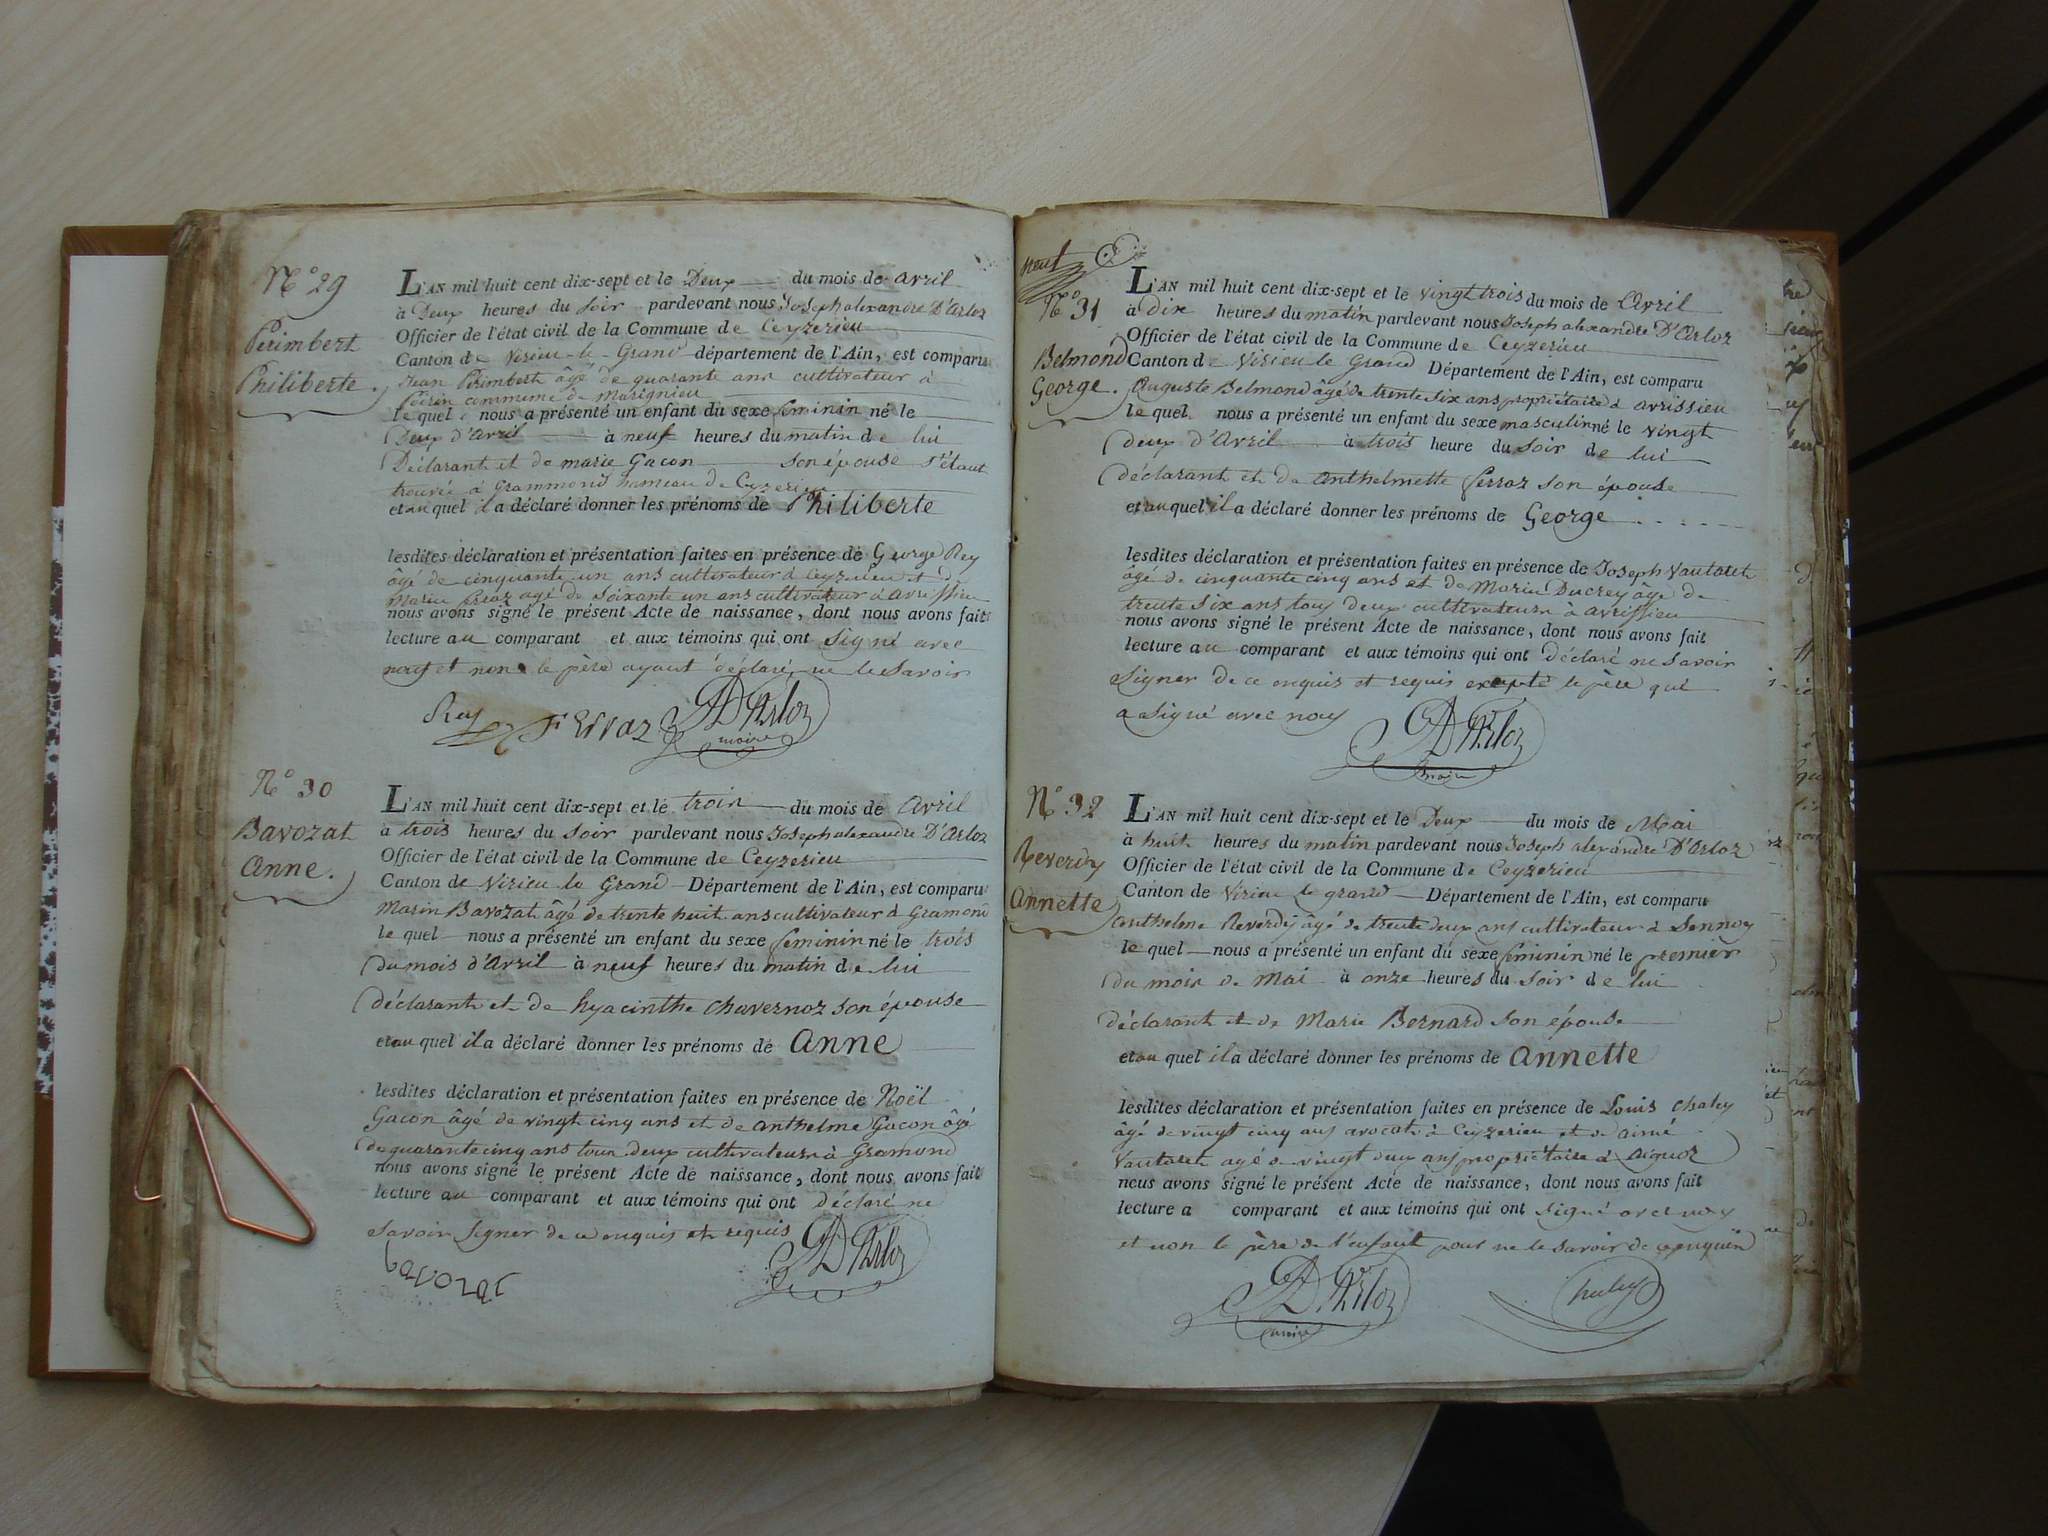 N° 29
Perimbert
Philiberte.
L'AN mil huit cent dix-sept et le Deux du mois de avril
à Deux heures du soir pardevant nous Joseph alexandre D'Arloz
Officier de l'état civil de la Commune de Ceyzerieu
Canton de Virieu-le-Grand département de l'Ain, est comparu
Jean Perimbert âgé de quarante ans cultivateur à
commune de Marignieu
le quel nous a présenté un enfant du sexe feminin né le
Deux d'Avril à neuf heures du matin de lui
Déclarant et de marie Gacon son épouse s'étant
trouvée à Grammond hameau de Ceyzerieu
et au quel il a déclaré donner les prénoms de Philiberte
lesdites déclaration et présentation faites en présence de George Rey
âgé de cinquante un ans cultivateur à Ceyzerieu et de
Marin Ferraz agé de soixante un ans cultivateur à avrissieu
nous avons signé le présent Acte de naissance, dont nous avons fait
lecture au comparant et aux témoins qui ont signé avec
nous et non le père ayant déclaré ne le savoir
Rey Ferraz D'Arloz
maire
N° 30
Bavozat
Anne.
L'AN mil huit cent dix-sept et le trois du mois de avril
à trois heures du soir pardevant nous Joseph alexandre D'Arloz
Officier de l'état civil de la Commune de Ceyzerieu
Canton de Virieu le Grand Département de l'Ain, est comparu
Marin Bavozat âgé de trente huit ans cultivateur à Gramond
le quel nous a présenté un enfant du sexe feminin né le trois
du mois d'Avril à neuf heures du matin de lui
déclarant et de hyacinthe Chavernoz son épouse
et au quel il a déclaré donner les prénoms de Anne
lesdites déclaration et présentation faites en présence de Noël
Gacon âgé de vingt cinq ans et de anthelme Gacon âgé
de quarante cinq ans tous deux cultivateurs à Gramond
nous avons signé le présent Acte de naissance, dont nous avons fait
lecture au comparant et aux témoins qui ont déclaré ne
savoir signer de ce enquis et requis D'Arloz
neuf
N° 31
Belmond
George.
L'AN mil huit cent dix-sept et le vingt trois du mois de Avril
à dix heures du matin pardevant nous Joseph alexandre D'Arloz
Officier de l'état civil de la Commune de Ceyzerieu
Canton de Virieu le Grand Département de l'Ain, est comparu
Auguste Belmond âgé de trente six ans propriétaire à avrissieu
le quel nous a présenté un enfant du sexe masculin né le vingt
deux d'Avril à trois heure du soir de lui
déclarant et de Anthelmette Ferraz son épouse
et au quel il a déclaré donner les prénoms de George
lesdites déclaration et présentation faites en présence de Joseph Vautaret
âgé de cinquante cinq ans et de Marin Ducrey âgé de
trente six ans tous deux cultivateurs à avrissieu
nous avons signé le présent Acte de naissance, dont nous avons fait
lecture au comparant et aux témoins qui ont déclaré ne savoir
signer de ce enquis et requis excepté le père qui
a signé avec nous D'Arloz
maire
N° 32
Reverdy
Annette
L'AN mil huit cent dix-sept et le Deux du mois de Mai
à huit heures du matin pardevant nous Joseph alexandre D'Arloz
Officier de l'état civil de la Commune de Ceyzerieu
Canton de Virieu le grand Département de l'Ain, est comparu
anthelme Reverdy âgé de trente deux ans cultivateur à
le quel nous a présenté un enfant du sexe feminin né le premier
du mois de Mai à onze heures du soir de lui
déclarant et de Marie Bernard son épouse
et au quel il a déclaré donner les prénoms de Annette
lesdites déclaration et présentation faites en présence de Louis Chaley
âgé de vingt cinq ans avocat à Ceyzerieu et de aimé
Vautaret agé de vingt deux ans propriétaire à Aignoz
nous avons signé le présent Acte de naissance, dont nous avons fait
lecture a comparant et aux témoins qui ont signé avec nous
et non le père de l'enfant pour ne le savoir de ce enquis
D'Arloz Chaley
maire